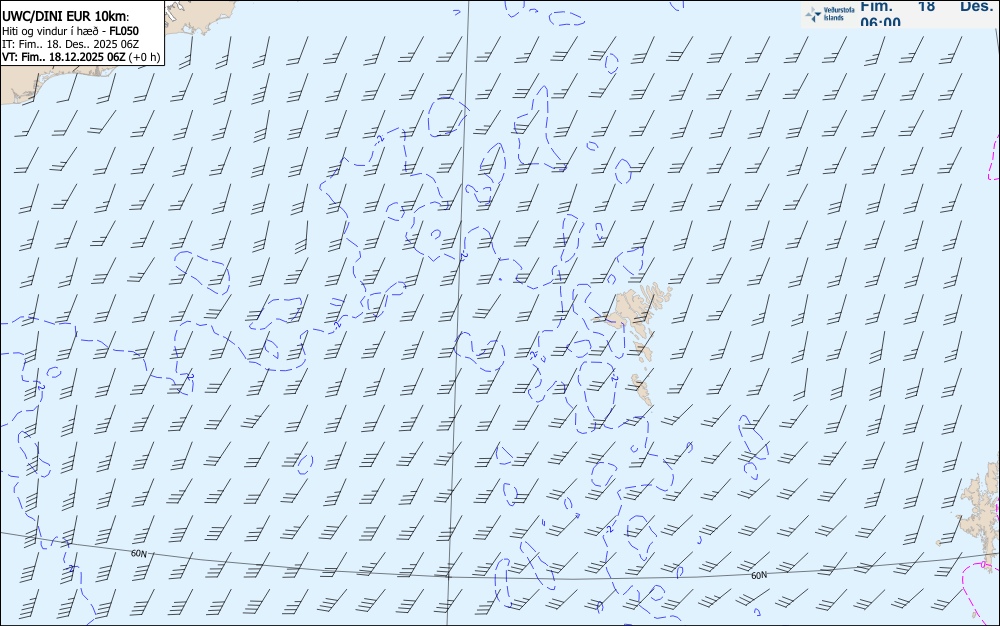 UWC/DINI EUR 10km:
Hiti og vindur í hæð - FL050
IT: Fim.. 18. Des.. 2025 06Z
VT: Fim.. 18.12.2025 06Z (+0 h)
Veðurstofa
Íslands
Fim. 18 Des.
06:00
60N
60N